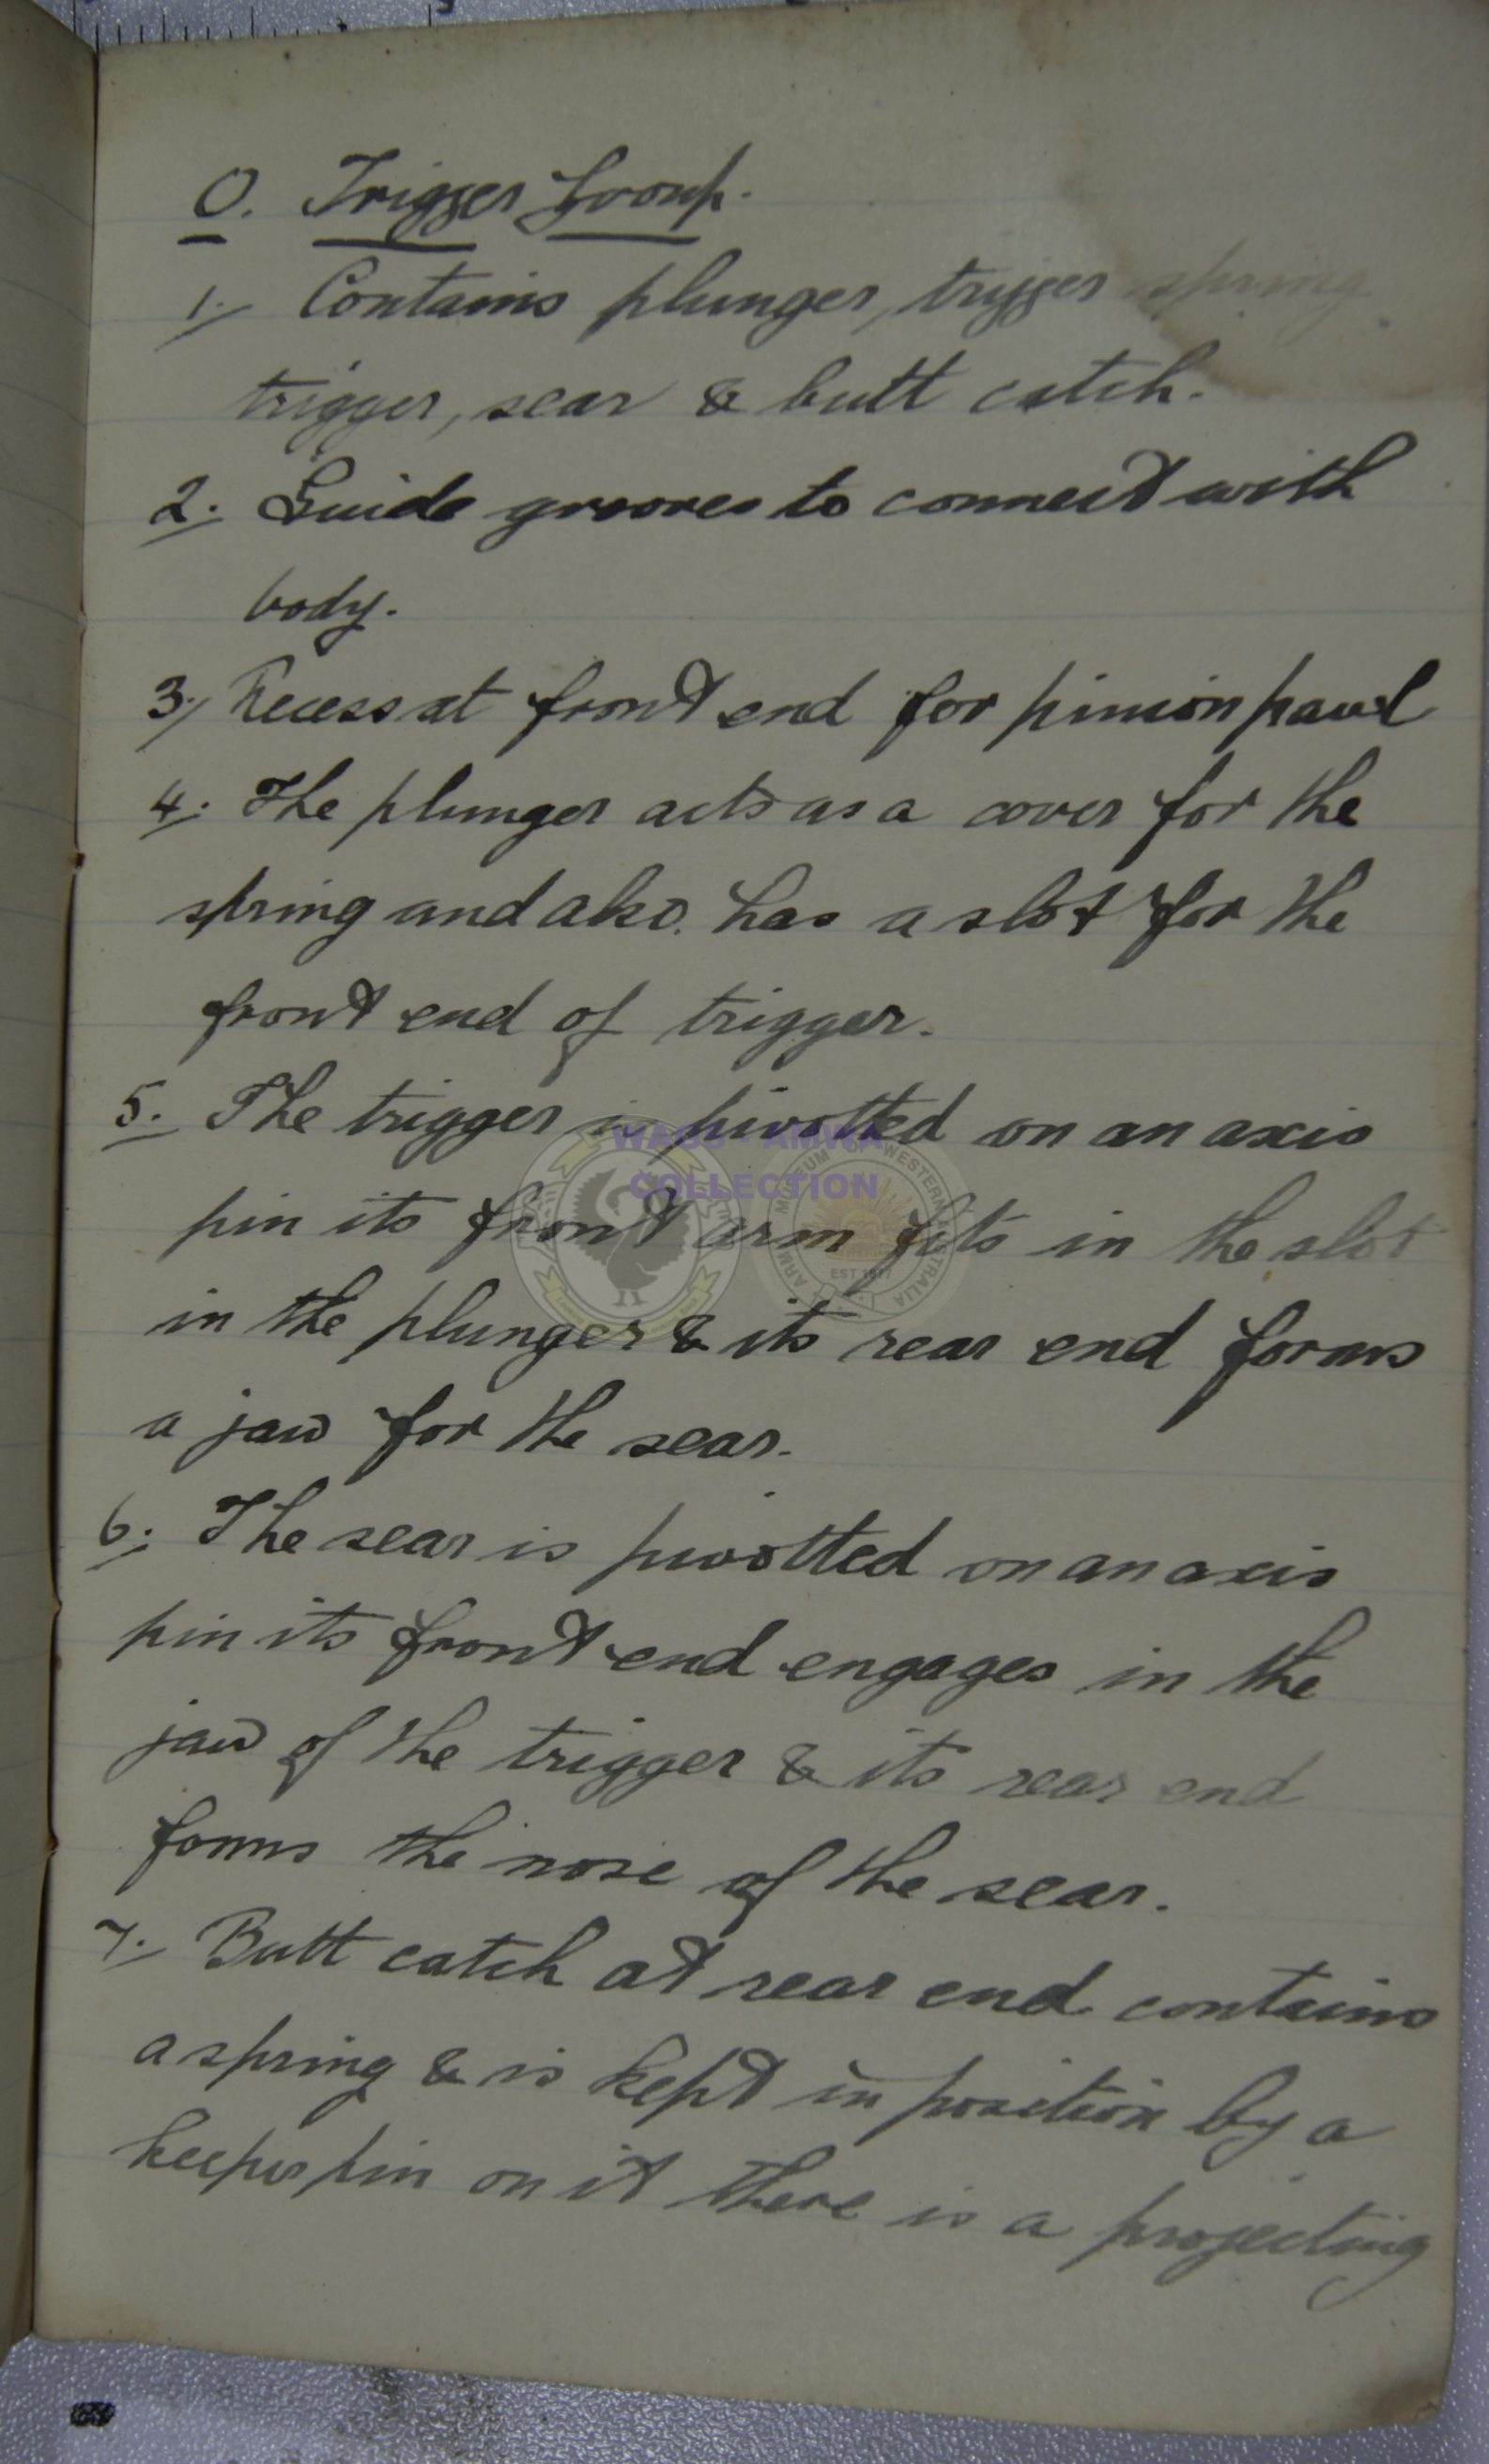 O. Trigger Group.
1. Contains plunger, trigger spring
trigger, sear & butt catch.
2. Guide grooves to connect with
body.
3. Recess at front end for pinion pawl
4. The plunger acts as a cover for the
spring and also. has a slot for the
front end of trigger.
5. The trigger is pivotted on an axis
pin its front arm fits in the slot
in the plunger & its rear end forms
a jaw for the sear.
6. The sear is pivotted on an axis
pin its front end engages in the
jaw of the trigger & its rear end
forms the nose of the sear.
7. Butt catch at rear end contains
a spring & is kept in position by a
keeper pin on it there is a projecting
COLLECTION
MUSEUM OF WESTERN AUSTRALIA
EST 1977